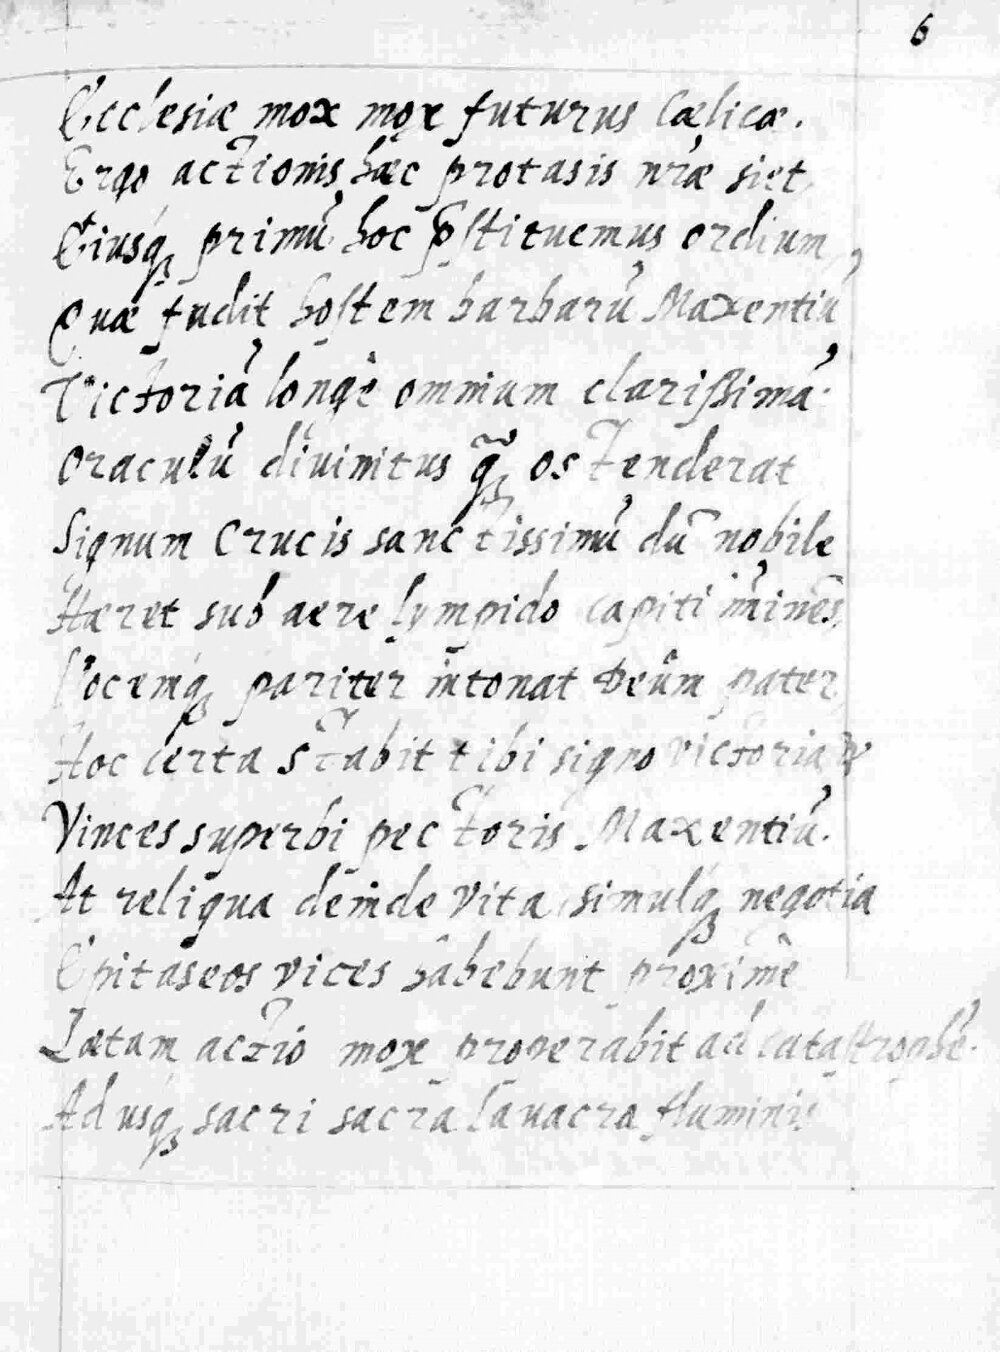 6
Ecclesiæ mox mox futurus Cælicæ.
Ergo actionis hæc protasis nr̃æ siet,
Eiusq́ꝫ primũ hoc p̃stituemus ordium,
Quæ fudit hostem barbarũ Maxentiũ
Victoriã longè omnium clarißimã.
Oraculũ diuinitus q̃ꝫ ostenderat
Signum Crucis sanctissimũ dũ nobile
Hæret sub aere lympido capiti im̃inẽs,
Vocemq́ꝫ pariter intonat Deûm pater,
Hoc certa stabit tibi signo victoria &
Vinces superbi pectoris Maxentiũ.
At reliqua deinde vita, simulq́ꝫ negotia
Epitaseos vices hâbebunt proximè
Lætam actio mox properabit ad catastrophẽ.
Ad usq́ꝫ sacri sacra lauacra fluminis